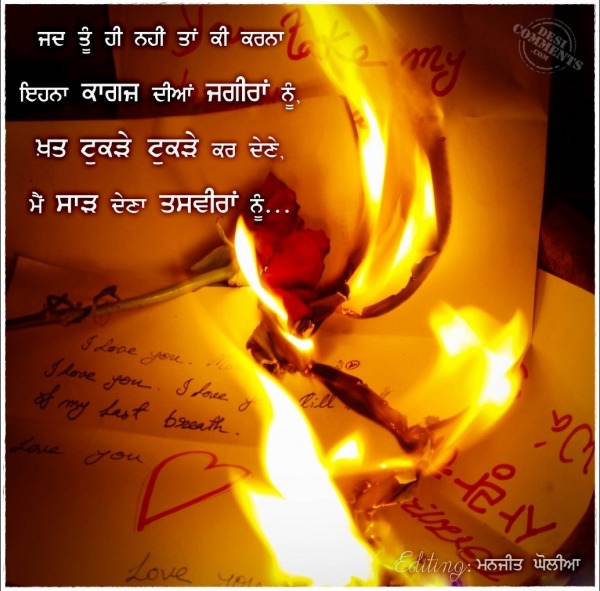 ਜਦ ਤੂੰ ਹੀ ਨਹੀ ਤਾਂ ਕੀ ਕਰਨਾ
ਇਹਨਾ ਕਾਗਜ਼ ਦੀਆਂ ਜਗੀਰਾਂ ਨੂੰ,
ਖ਼ਤ ਟੁਕੜੇ ਟੁਕੜੇ ਕਰ ਦੇਣੇ,
ਮੈਂ ਸਾੜ ਦੇਣਾ ਤਸਵੀਰਾਂ ਨੂੰ...
DESI
COMMENTS
.COM
You take my
I love you.
I love you. I love
of my last breath.
Love you
Love you
Editing: ਮਨਜੀਤ ਘੋਲੀਆ